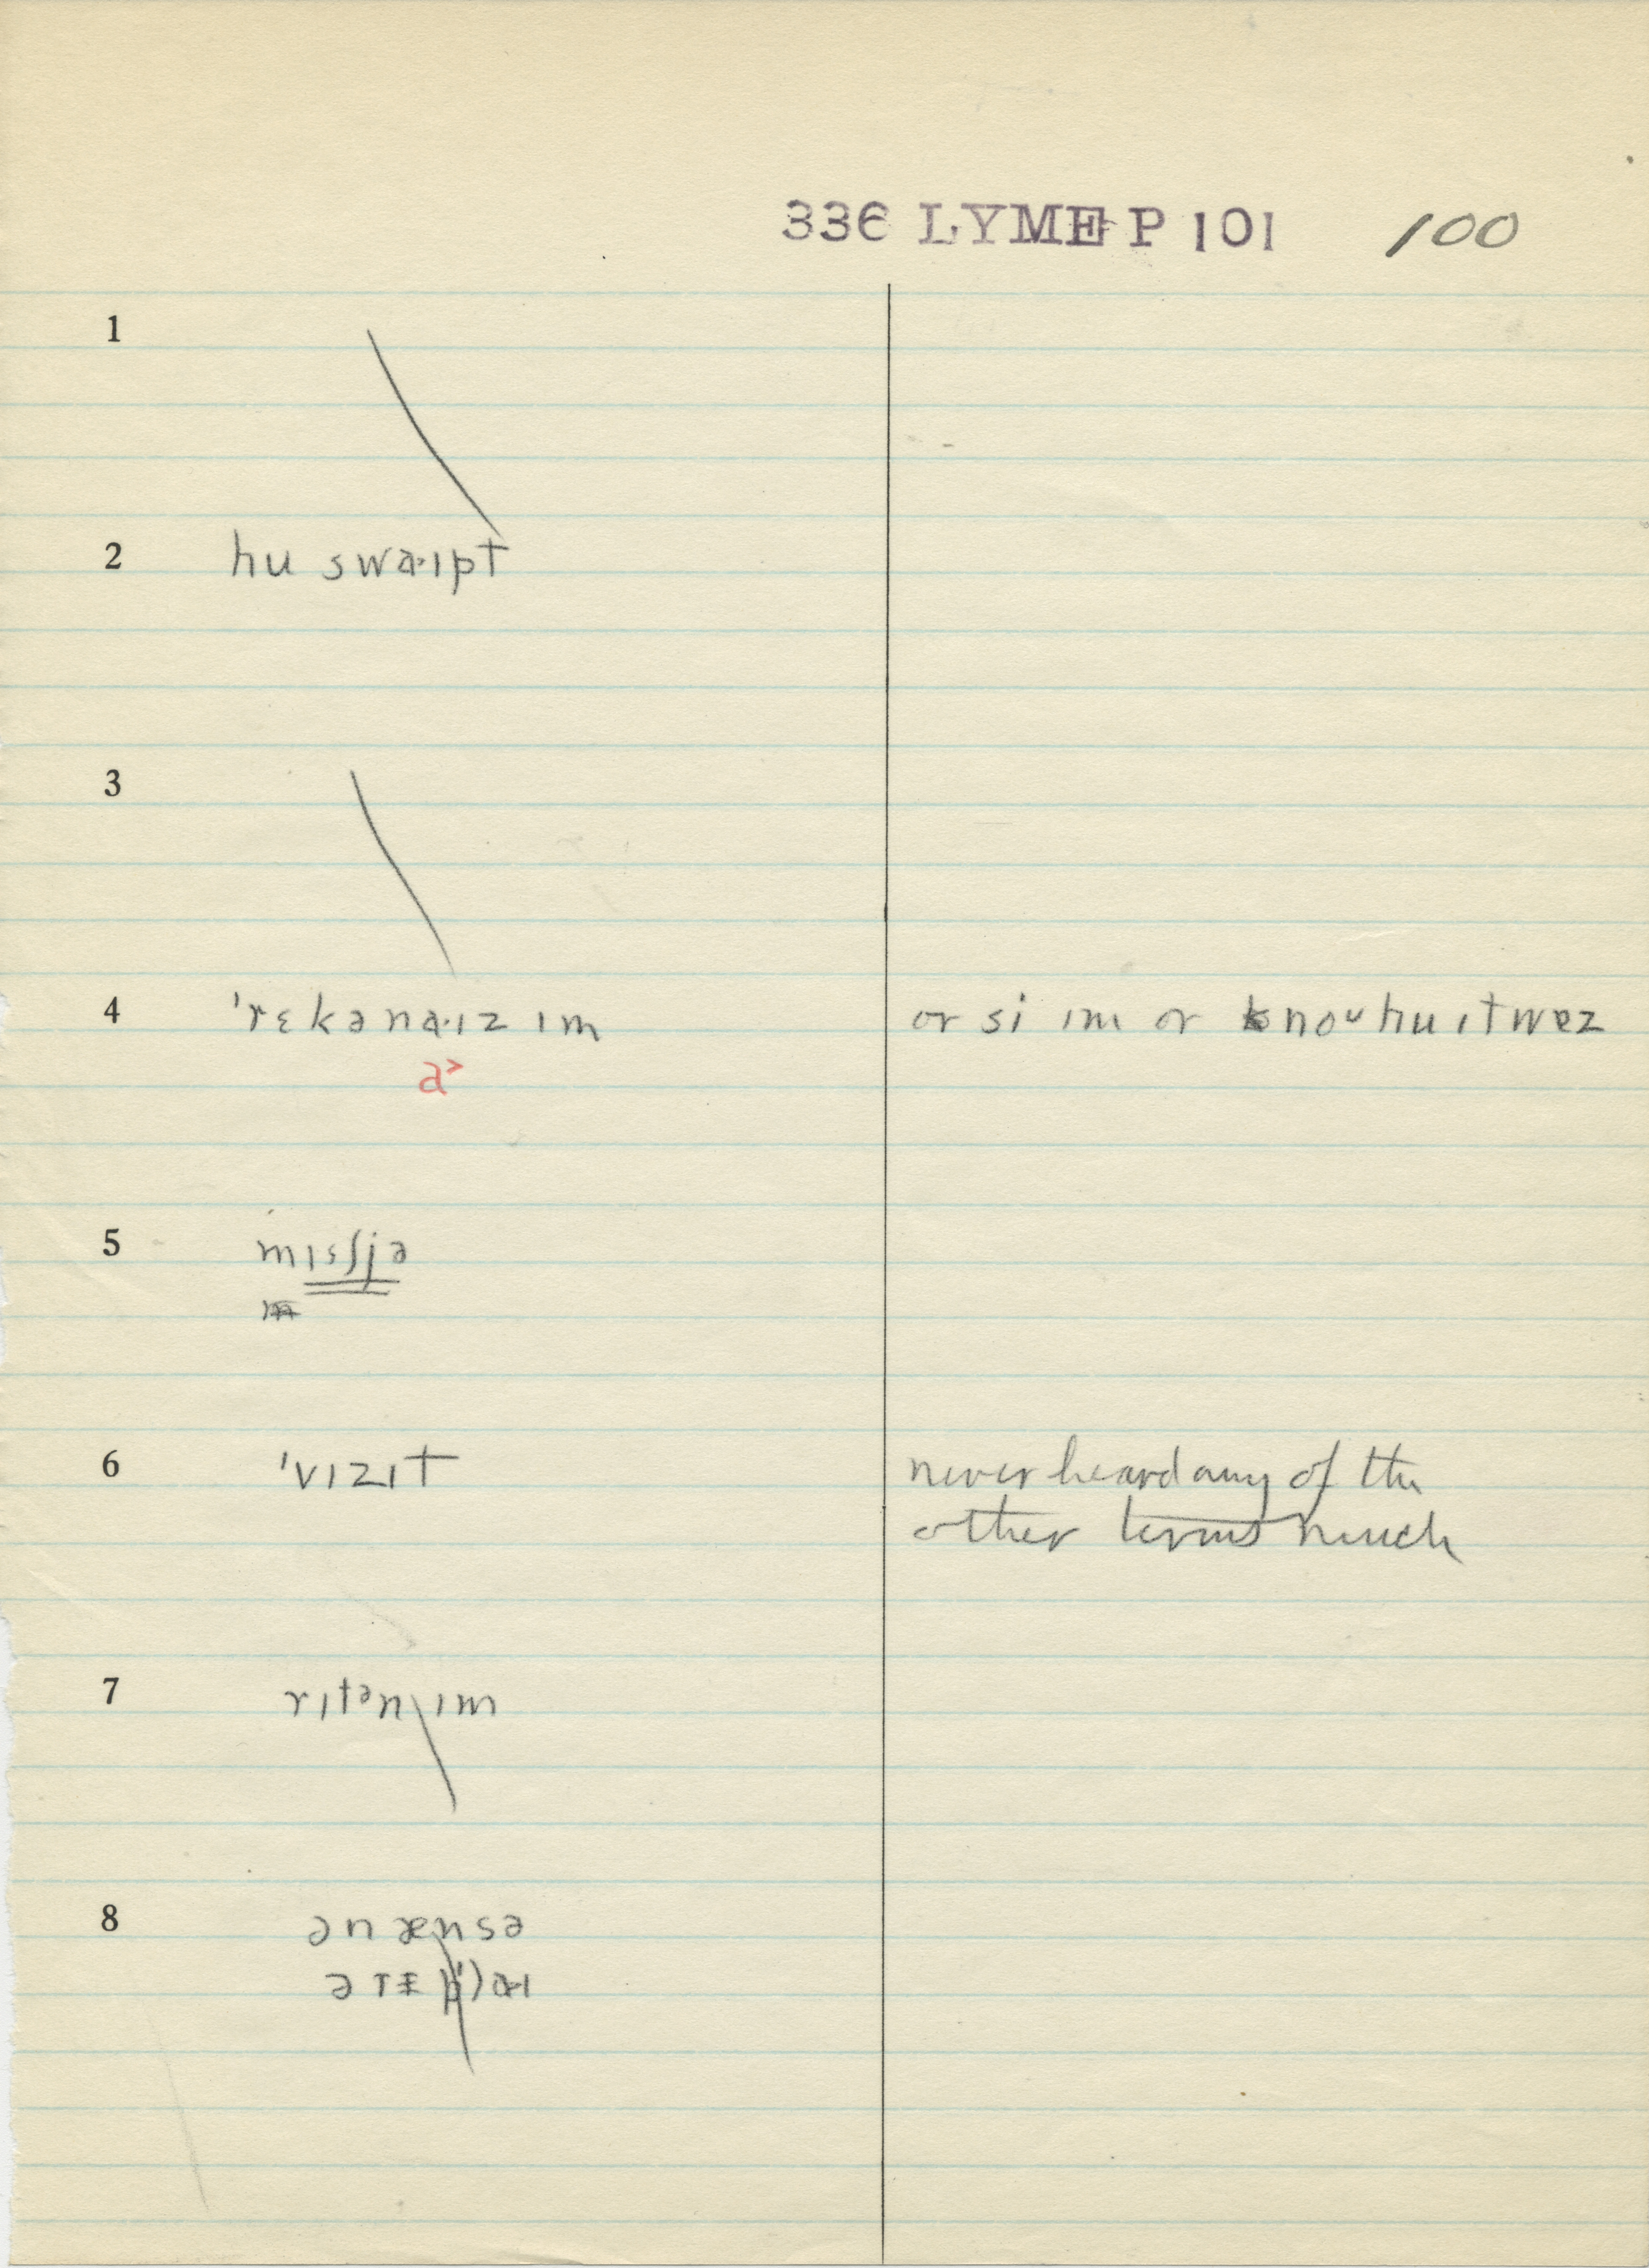 336 LYME P 101 100
1
2 hu swa·ɪpt
3
4 ˈrɛkəna·ɪz ɪm or si ɪm or noᴜ hu ɪt wɒz
a>
5 mɪsʃjə
6 ˈvɪzɪt never heard any of the
other terms much
7 rɪtən ɪm
8 ən ænsə
ə rɪ